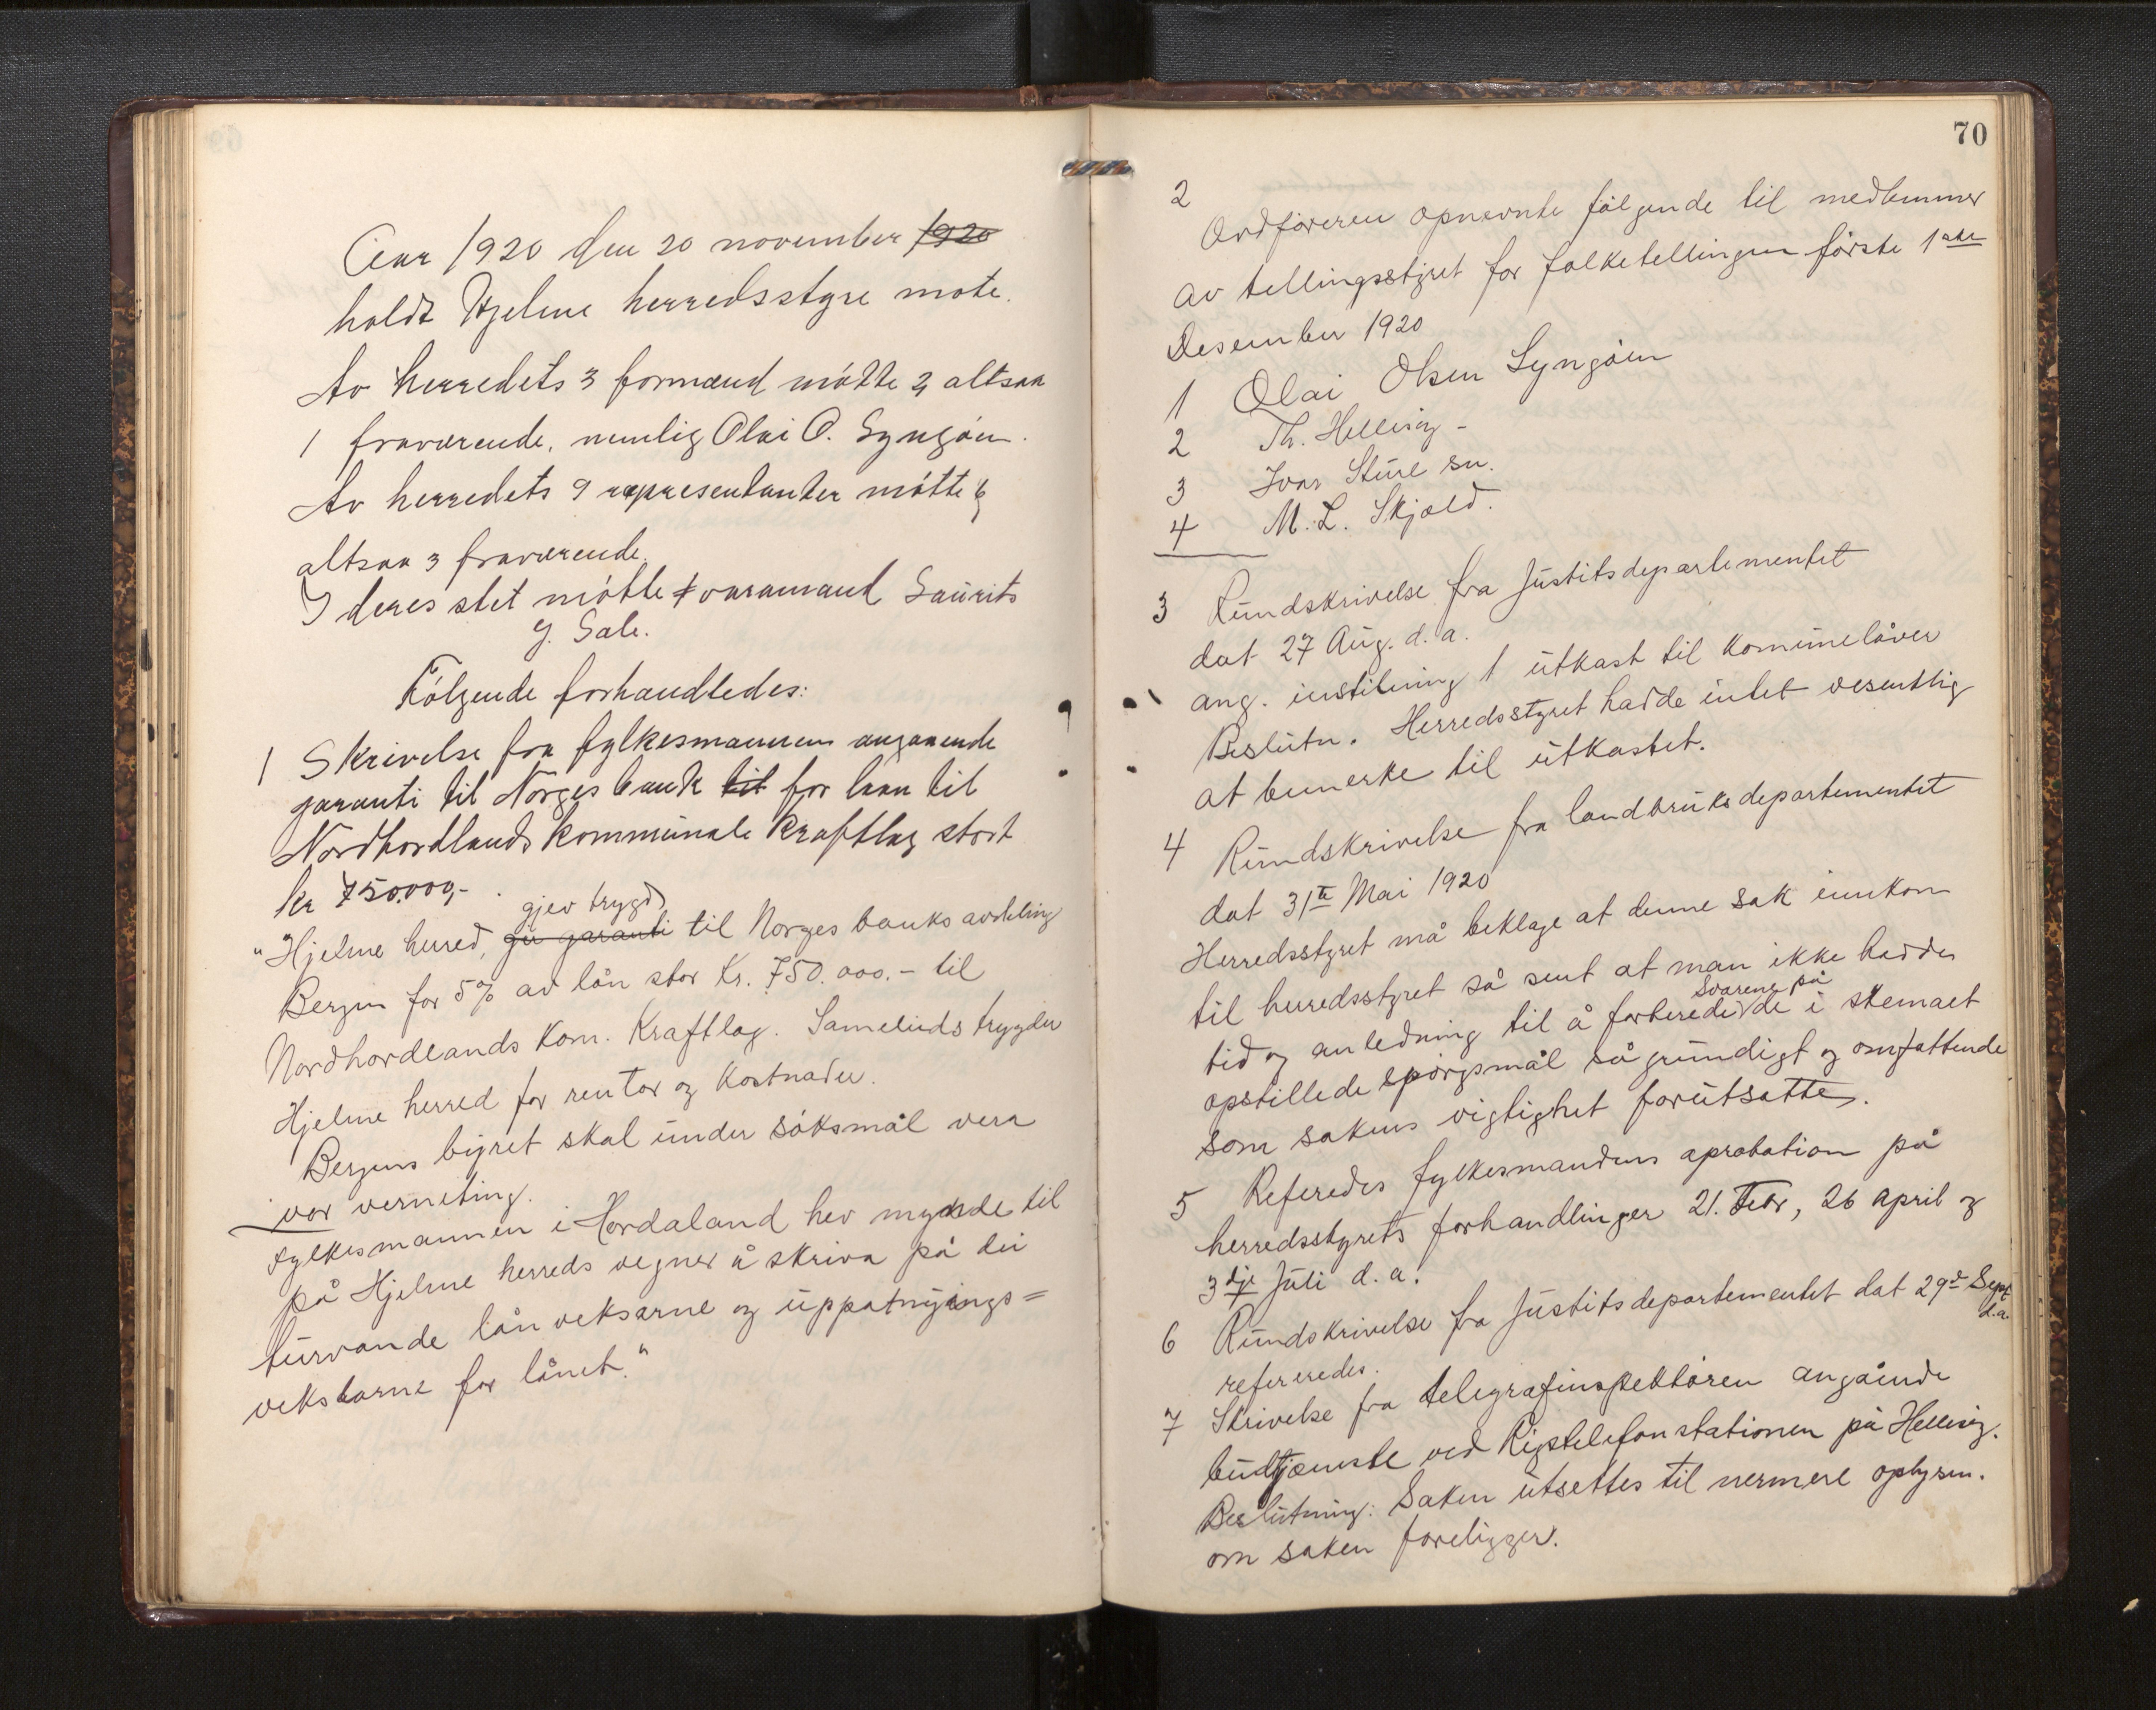 Aar 1920 den 20 november 1920
holdt Hjelme herredsstyre møte.
Av herredets 3 formænd møtte 2 altsaa
1 fraværende, nemlig Olai O. Lyngøen.
Av herredets 9 representanter møtte 6
altsaa 3 fraværende.
I deres stet møtte varamand Laurits
J. Sale.
Følgende forhandledes:
1 Skrivelse fra fylkesmannen angaaende
garanti til Norges bank til for laan til
Nordhordlands kommunale kraftlag stort
kr 750.000,-
gjev trygd
"Hjelme herred, gir garanti til Norges banks avdeling
Bergen for 5% av lån stor Kr. 750.000.- til
Nordhordlands kom. Kraftlag. Sameleids trygder
Hjelme herred for rentor og kostnader.
Bergens byret skal under søksmål vera
vor verneting.
Fylkesmannen i Hordaland hev mynde til
på Hjelme herreds vegner å skriva på dei
turvande lån veksarne og uppatnyings=
vekslarne for lånet."
70
2
Ordføreren opnevnte følgende til medlemmer
av tellingsstyret for folketellingen første 1ste
Desember 1920
1 Olai Olsen Lyngøen
2 Th. Hellisøy -
3 Ivar Sture sn.
4 M. L. Skjold.
3 Rundskrivelse fra Justitsdepartementet
dat 27 Aug. d. a.
ang. instilning 1 utkast til kommunelåver
Beslutn. Herredsstyret hadde intet vesentlig
at bemerke til utkastet.
4 Rundskrivelse fra landbruksdepartementet
dat 31te Mai 1920
Herredsstyret må beklage at denne sak innkom
til herredsstyret så sent at man ikke hadde
tid og anledning til å forberede svarene på de i skemaet
opstillede spørgsmål så grundigt og omfattende
som sakens vigtighet forutsatte.
5 Referedes fylkesmandens aprobation på
herredsstyrets forhandlinger 21. Febr, 26 april og
3dje Juli d. a.
6 Rundskrivelse fra Justitsdepartementet dat 29de Sept
d.a.
refereredes.
7 Skrivelse fra telegrafinspektøren angående
budtjeneste ved Rigstelefonstationen på Hellisøy.
Beslutning: Saken utsettes til nermere oplysn.
om saken foreligger.